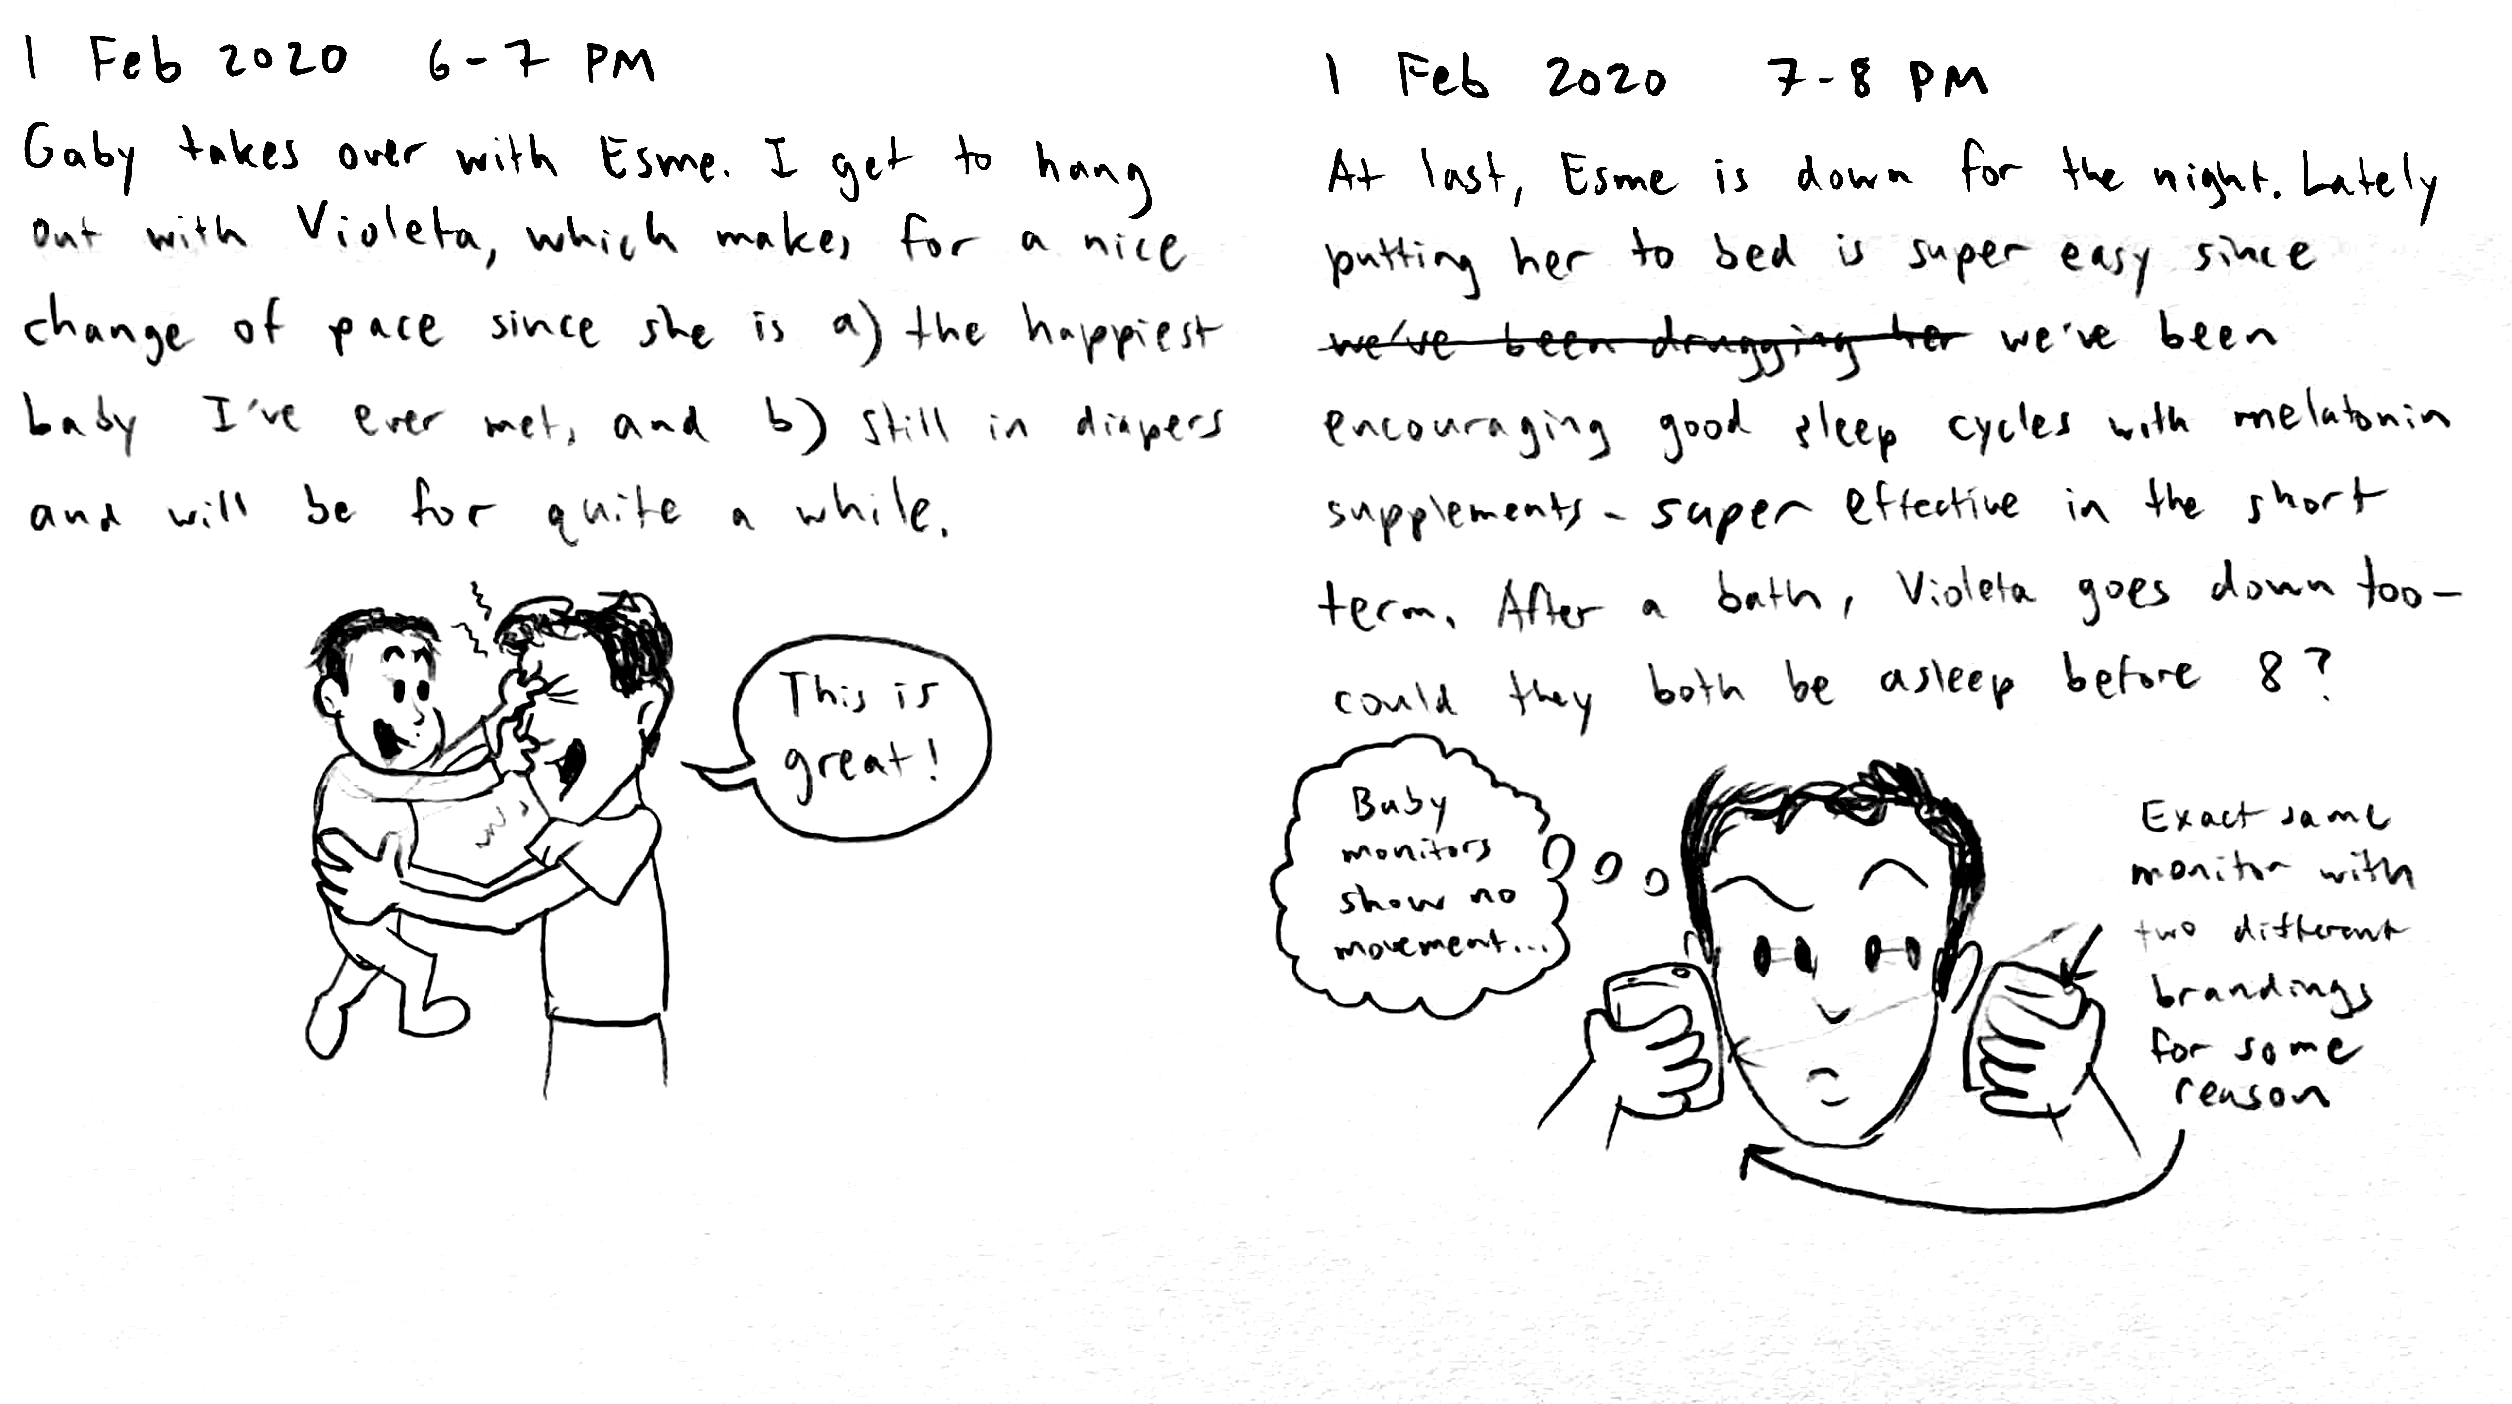 1 Feb 2020 6-7 PM
Gaby takes over with Esme. I get to hang
out with Violeta, which makes for a nice
change of pace since she is a) the happiest
baby I've ever met, and b) still in diapers
and will be for quite a while.
This is
great!
1 Feb 2020 7-8 PM
At last, Esme is down for the night. Lately
putting her to bed is super easy since
we've been drugging her we've been
encouraging good sleep cycles with melatonin
supplements - super effective in the short
term. After a bath, Violeta goes down too-
could they both be asleep before 8?
Baby
monitors
show no
movement...
Exact same
monitor with
two different
brandings
for some
reason